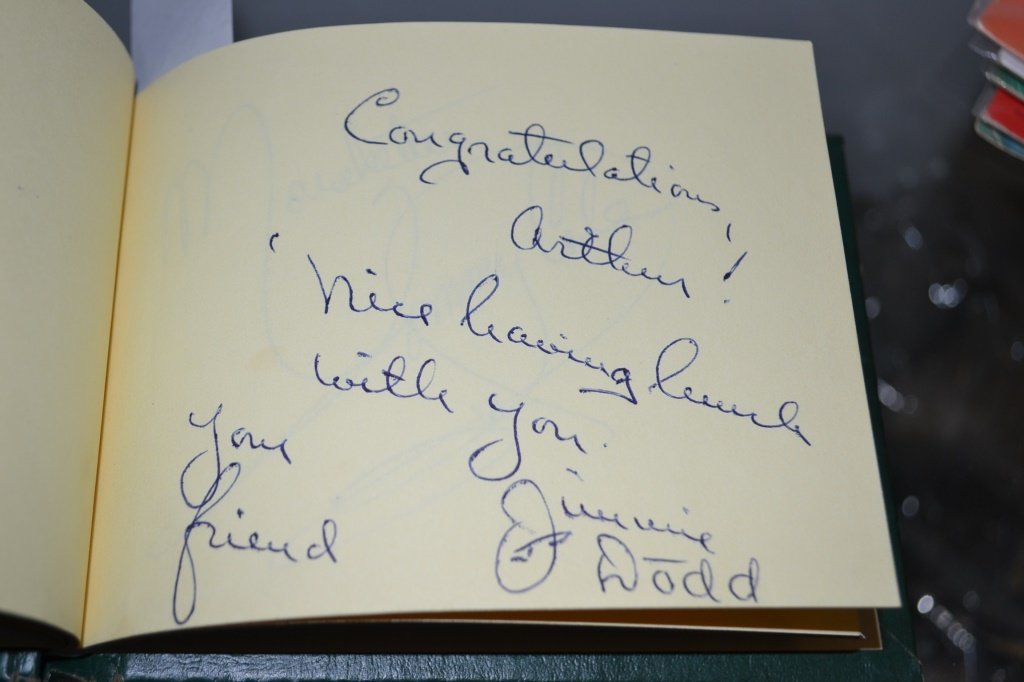 Congratulations,
Arthur!
Nice having lunch
with you.
Your
friend
Jimmie
Dodd